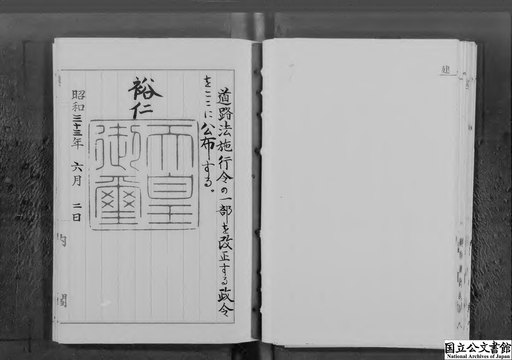 道路法施行令の一部を改正する政令
をここに公布する。
裕仁
天皇
御璽
昭和三十三年 六月 二日
内閣
建
国立公文書館
National Archives of Japan